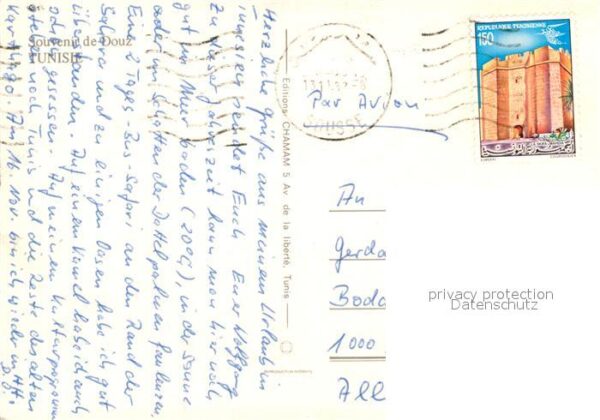 Souvenir de Douz
TUNISIE
Herzliche Grüße aus meinem Urlaub in
Tunesien sendet Euch Euer Wolfgang
Zu dieser Jahreszeit kann man hier noch
gut im Meer baden (20°C), in der Sonne
oder im Schatten der Dattelpalmen faulenzen.
Eine 2 Tages-Bus-Safari an den Rand der
Sahara und zu einigen Oasen habe ich gut
überstanden. Auf einem Kamel habe ich auch
schon gesessen. Auf meinem Kulturprogramm
stehen noch Tunis und die Reste des alten
Karthago. Am 16. Nov. bin ich wieder in HH.
Editions CHAMAM 5 Av. de la liberté, Tunis
SOUSSE
Par Avion
REPUBLIQUE TUNISIENNE
150
An
Gerda
Bod
1000
All
privacy protection
Datenschutz